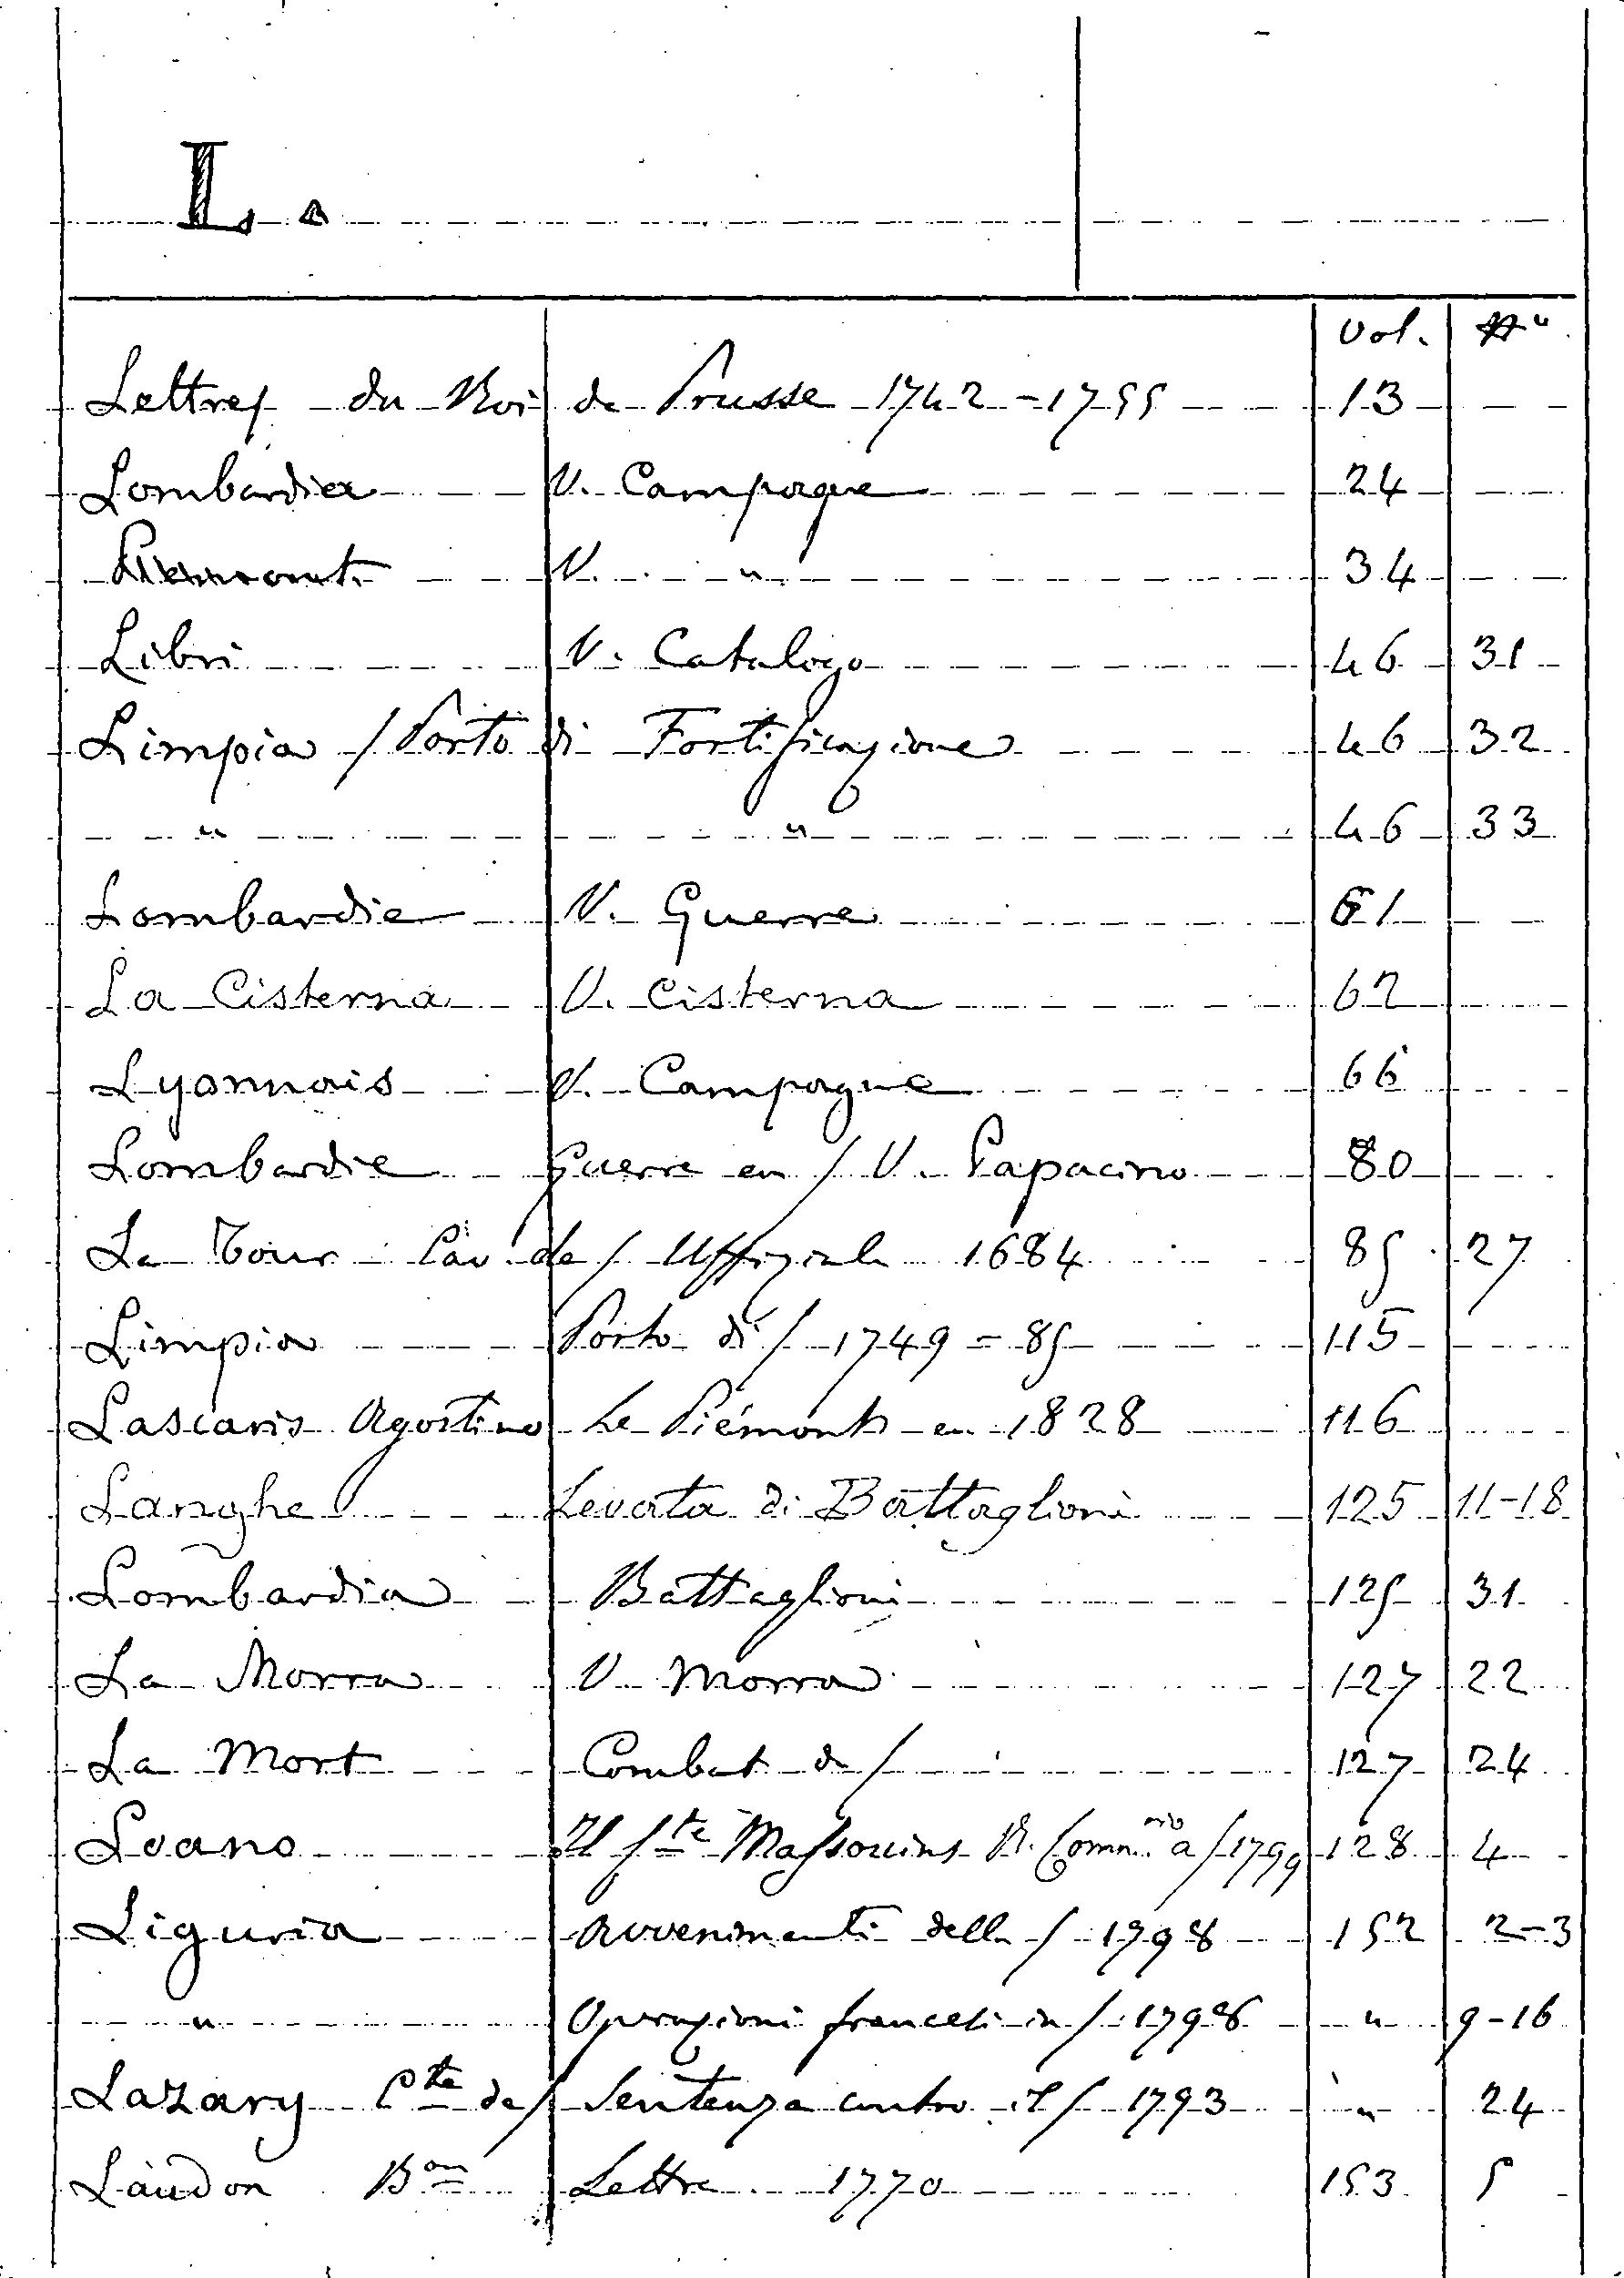 L.
Vol. N°
Lettres du Roi de Prusse 1742-1755 13
Lombardie V. Campagne 24
Piemont V. " 34
Libri V. Catalogo 46 31
Limpia / Porto di Fortificazione 46 32
" " 46 33
Lombardie V. Guerre 61
La Cisterna V. Cisterna 62
Lyonnais V. Campagne 66
Lombardie Guerre en / V. Papacino 80
La Tour Cav. de / Uffiziale 1684 85 27
Limpia Porto di / 1749-85 115
Lascaris Agostino Le Piémont en 1828 116
Langhe Levata di Battaglioni 125 11-18
Lombardia Battaglioni 125 31
La Morra V Morra 127 22
La Mort Combat de / 127 24
Loano Il Massouins R. Commrio a / 1799 128 4
Liguria Avvenimenti della / 1798 152 2-3
" Operazioni francesi in / 1798 " 9-16
Lazary Cte de / Sentenza contro il / 1793 " 24
Laudon Bon Lettre 1770 153 5